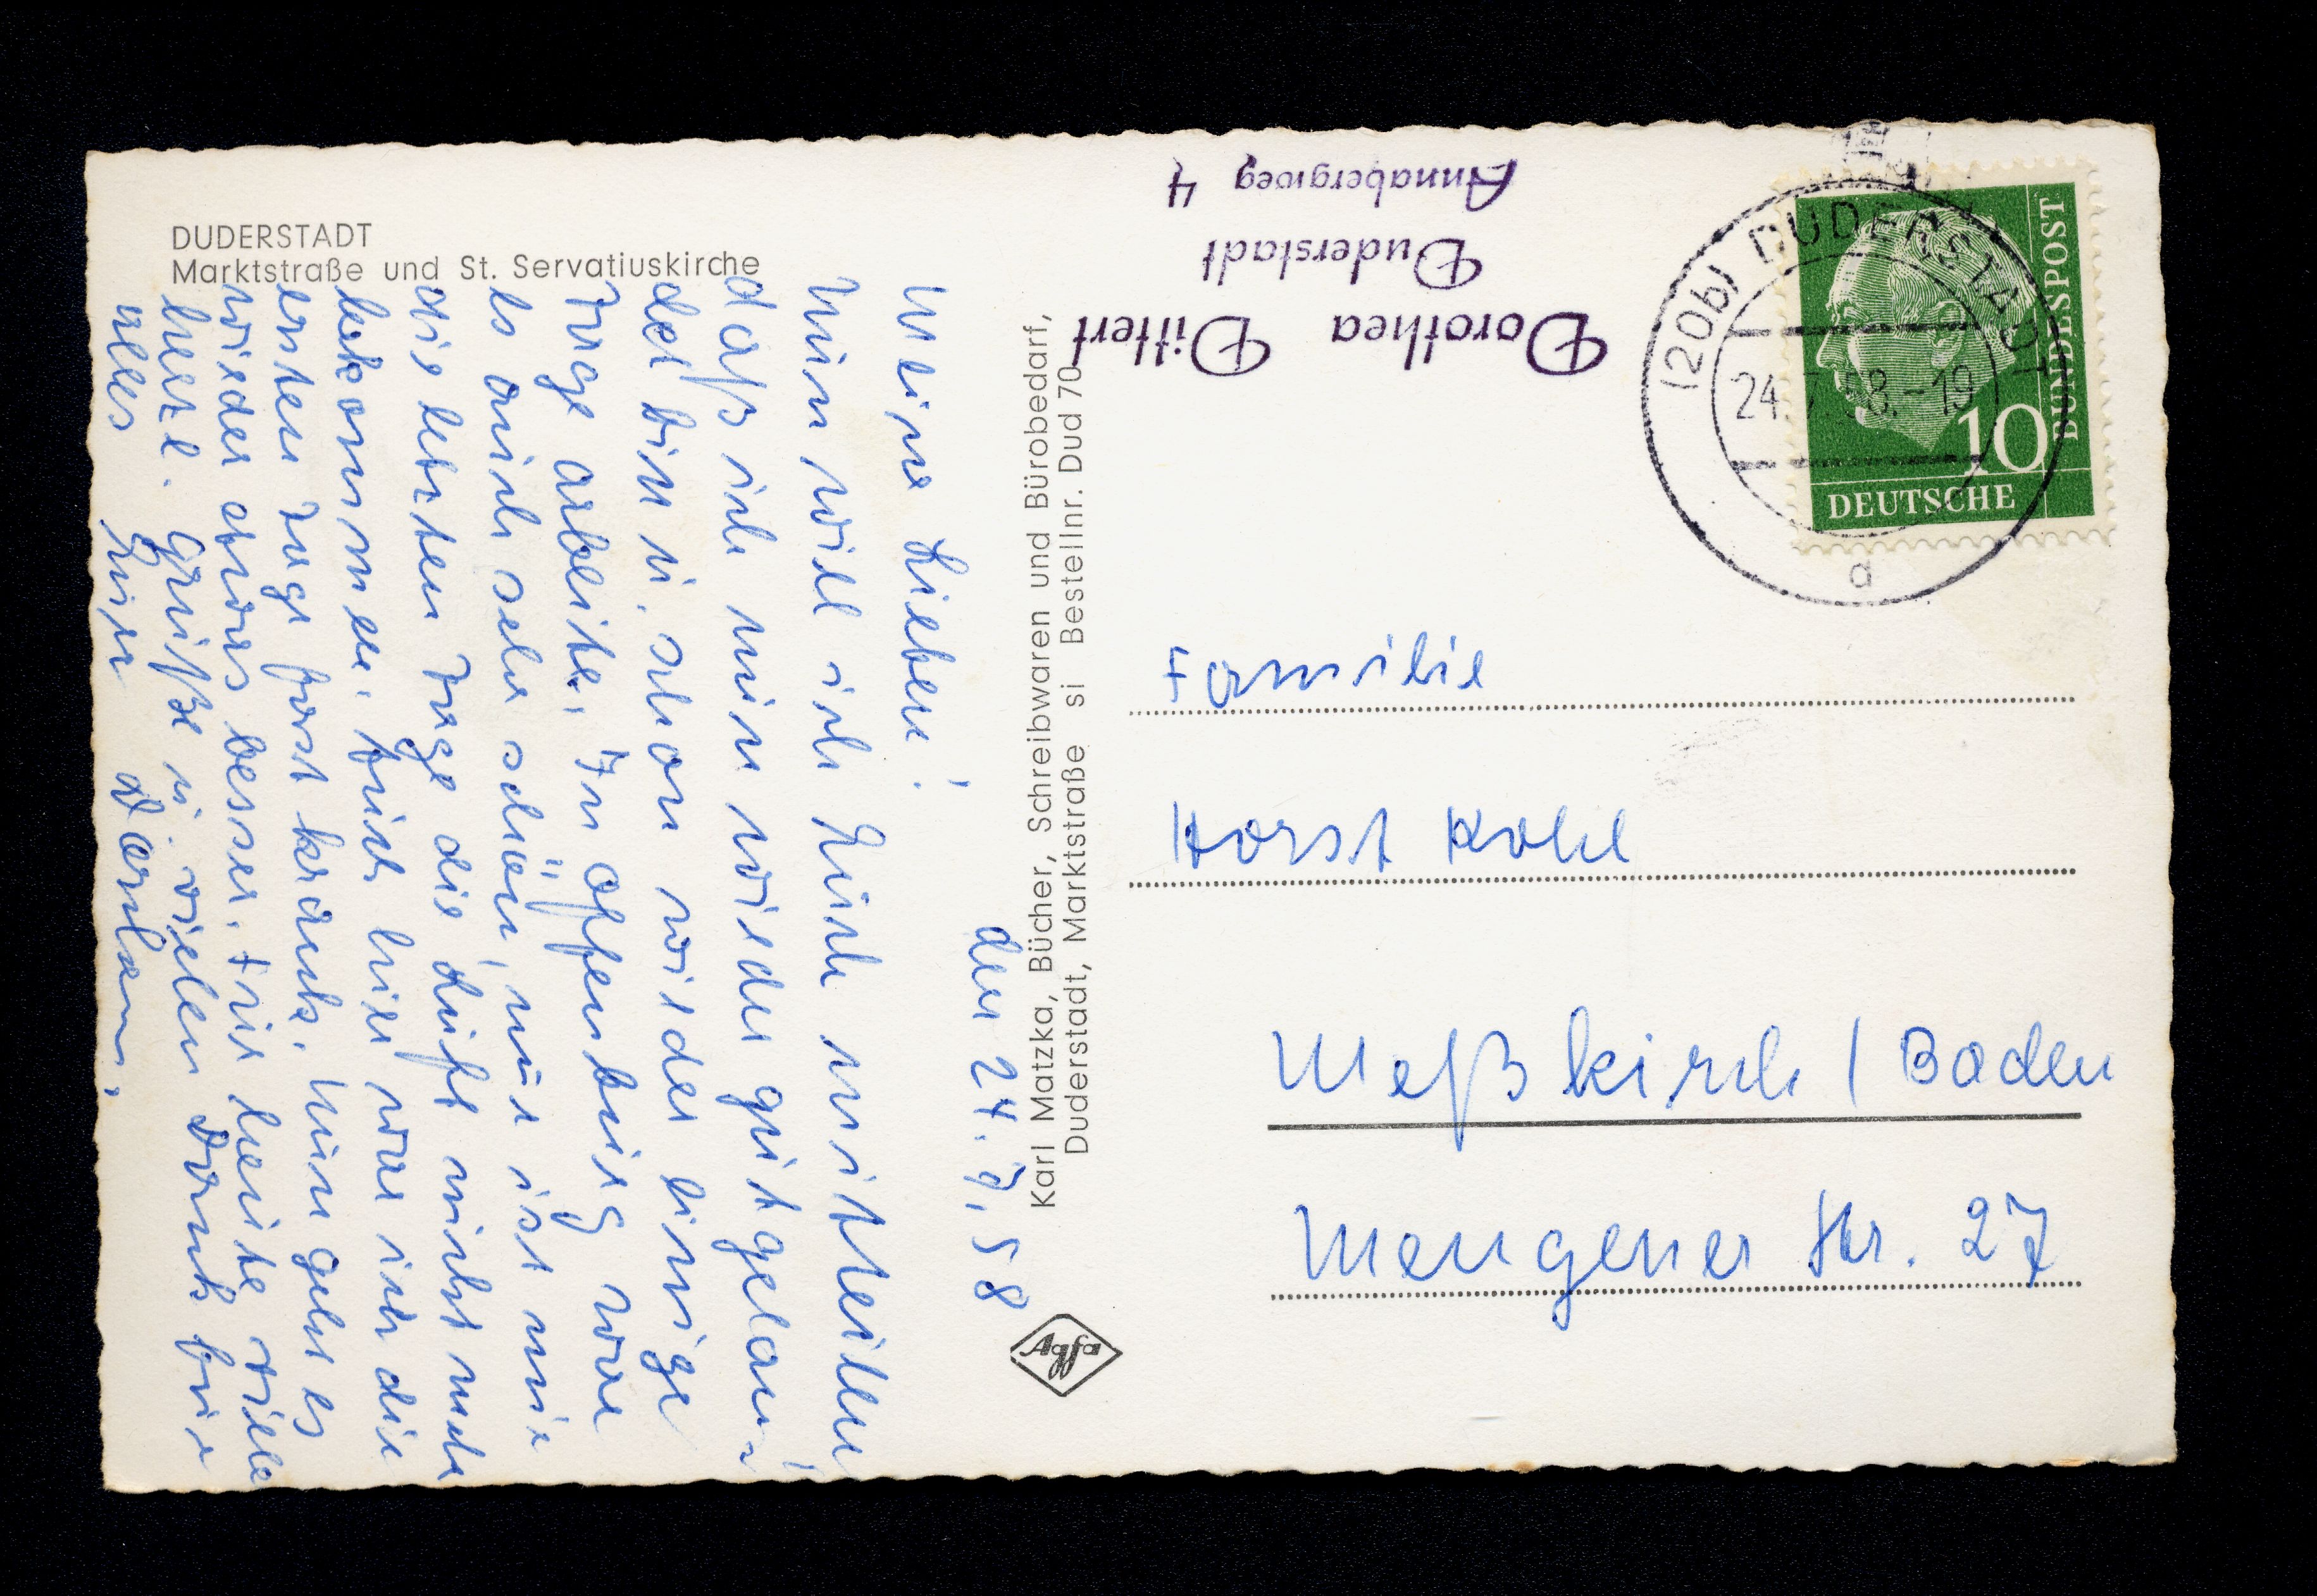 DUDERSTADT
Marktstraße und St. Servatiuskirche
den 24. 7. 58
Meine Lieben!
Nun will ich Euch mitteilen,
daß ich nun wieder gut gelan-
det bin u. schon wieder einige
Tage arbeite. In Offenburg war
es auch sehr schön, nur ist mir
die letzten Tage die Luft nicht mehr
bekommen. Auch hier war ich die
ersten Tage fast krank. Nun geht es
wieder etwas besser. Für heute viele
herzl. Grüße u. vielen Dank für
alles Eure
Karl Matzka, Bücher, Schreibwaren und Bürobedarf,
Duderstadt, Marktstraße si Bestellnr. Dud 70
Agfa
Dorothea Dittert
Duderstadt
Annabergweg 4
(20b) DUDERSTADT
24.7.58.-19
a
10
DEUTSCHE
BUNDESPOST
Familie
Horst Kohl
Meßkirch / Baden
Mengener Str. 27